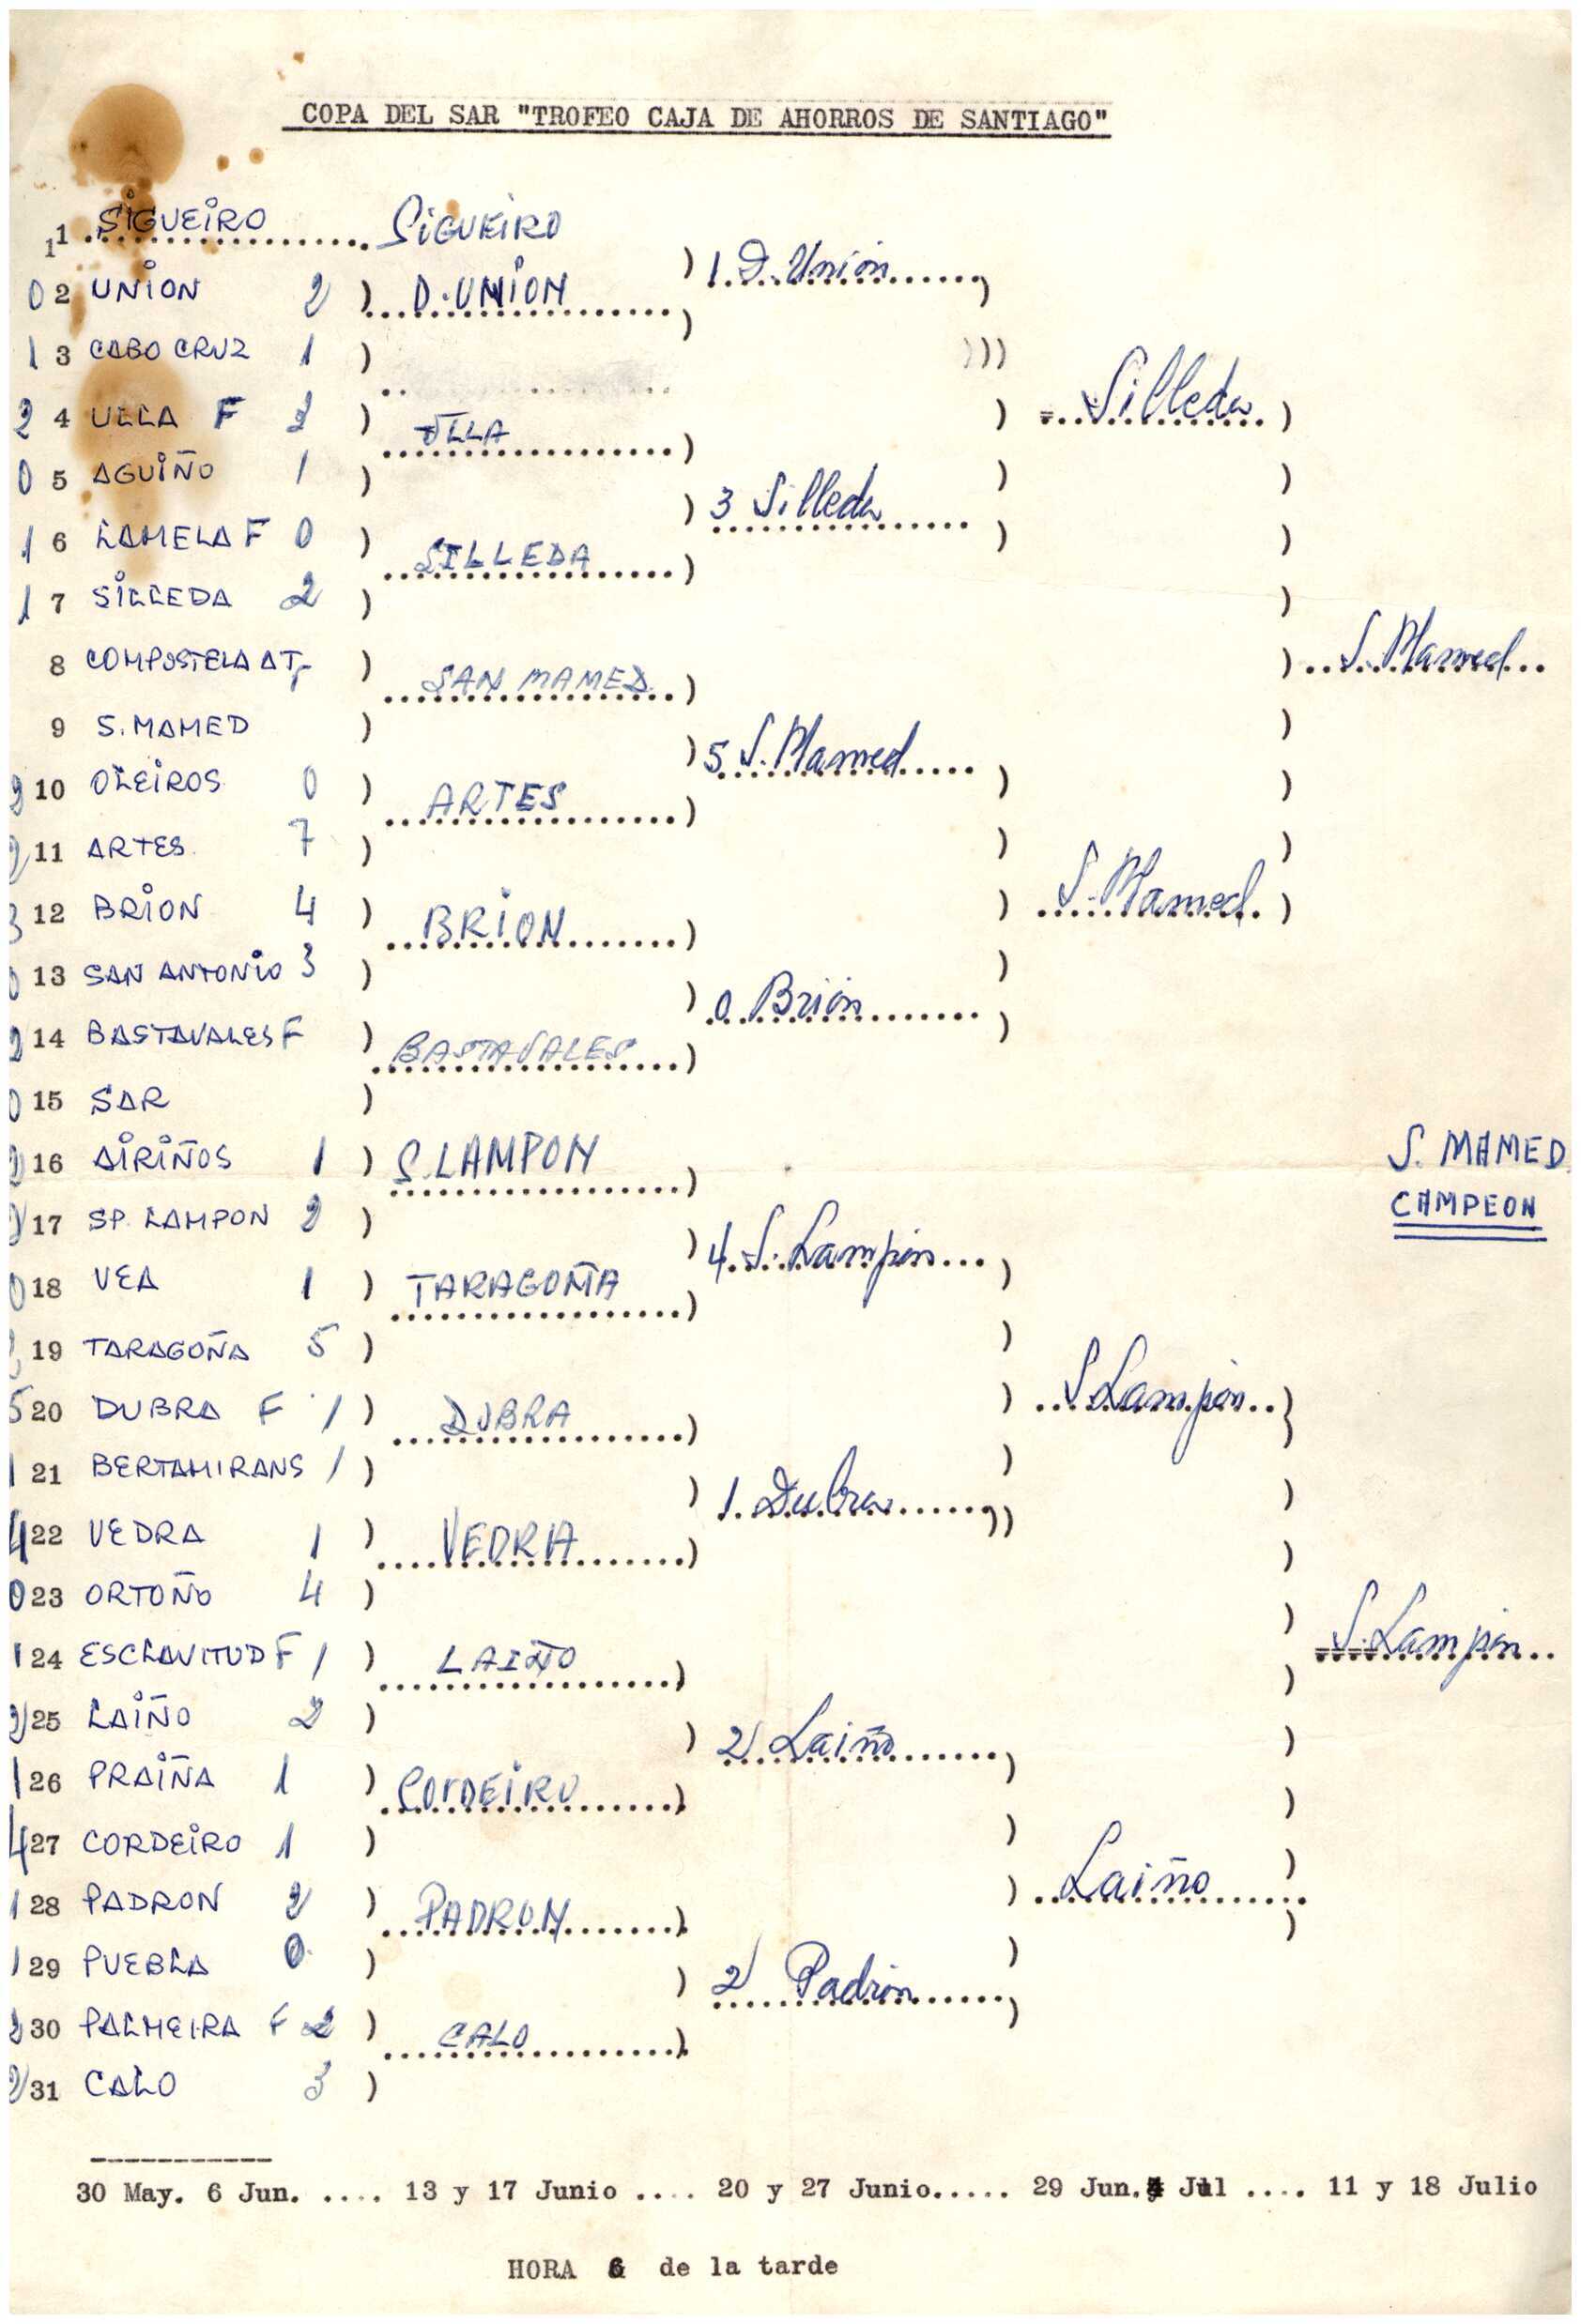 COPA DEL SAR "TROFEO CAJA DE AHORROS DE SANTIAGO"
11 SIGUEIRO SIGUEIRO
1 D. Union
0 2 UNION 2 ) D. UNION )
1 3 CABO CRUZ 1 )
Silleda
2 4 ULLA F 2 ) ULLA )
0 5 AGUIÑO 1 )
3 Silleda
1 6 LAMELA F 0 ) SILLEDA )
1 7 SILLEDA 2 )
8 COMPOSTELA AT F ) SAN MAMED ) S. Mamed
9 S. MAMED )
5 S. Mamed
2 10 OLEIROS 0 ) ARTES )
2 11 ARTES 7 )
3 12 BRION 4 ) BRION ) S. Mamed
0 13 SAN ANTONIO 3 )
0 Brión
2 14 BASTAVALES F ) BASTAVALES )
0 15 SAR )
S. MAMED
CAMPEON
2 16 AIRIÑOS 1 ) S. LAMPON )
2 17 SP. LAMPON 2 )
4 S. Lampón
0 18 VEA 1 ) TARAGOÑA )
19 TARAGOÑA 5 )
5 20 DUBRA F 1 ) DUBRA ) S Lampón
1 21 BERTAMIRANS 1 )
1 Dubra
4 22 VEDRA 1 ) VEDRA )
0 23 ORTOÑO 4 )
1 24 ESCLAVITUD F 1 ) LAIÑO ) S. Lampón
2 25 LAIÑO 2 )
2 Laiño
1 26 PRAIÑA 1 ) CORDEIRO )
4 27 CORDEIRO 1 )
1 28 PADRON 2 ) PADRON ) Laiño
1 29 PUEBLA 0 )
2 Padrón
2 30 PALMEIRA F 2 ) CALO )
2 31 CALO 3 )
30 May. 6 Jun. .... 13 y 17 Junio .... 20 y 27 Junio..... 29 Jun. 4 Jul .... 11 y 18 Julio
HORA 6 de la tarde